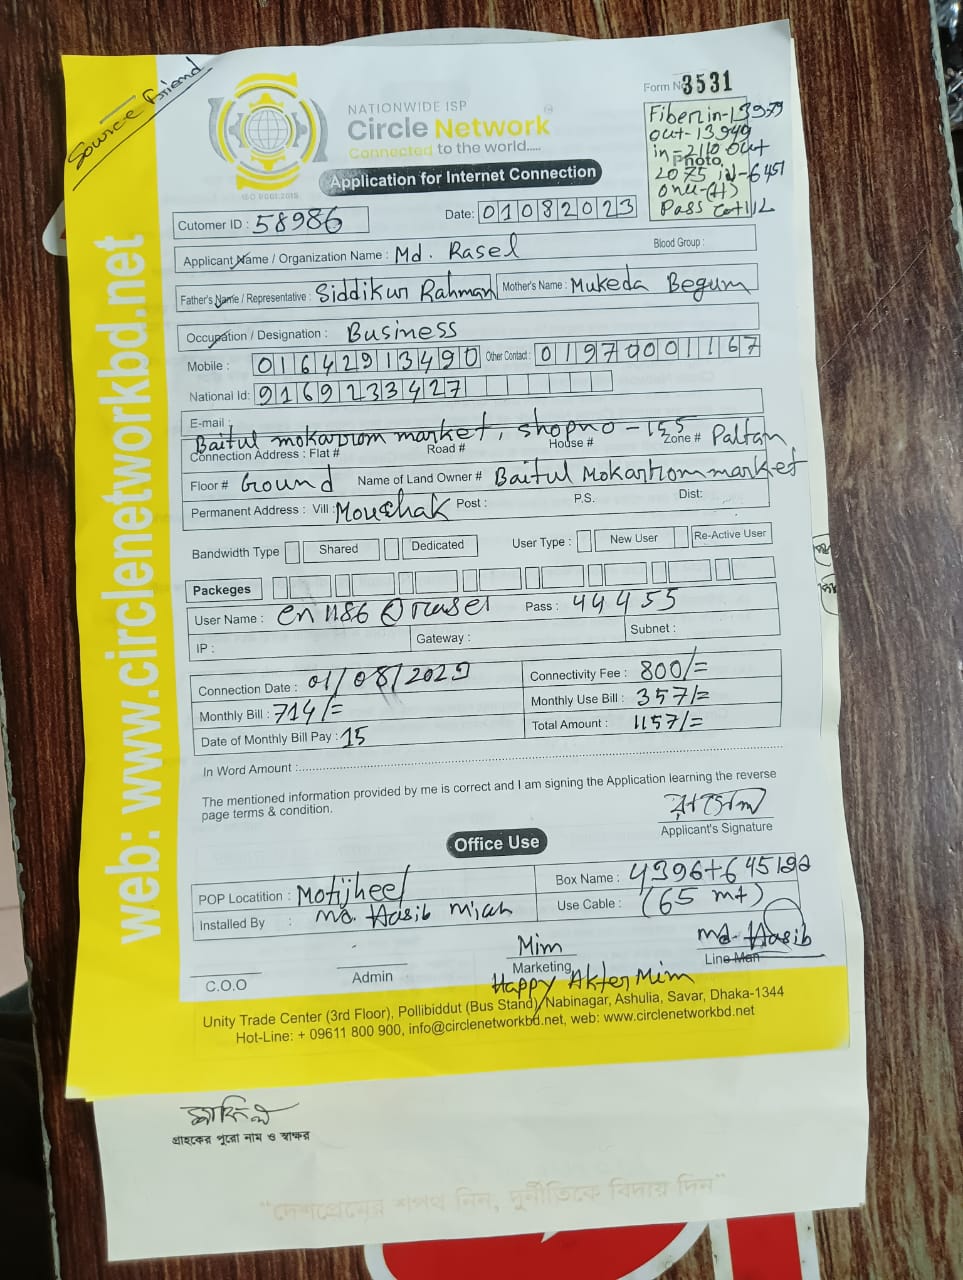 Source Friend
NATIONWIDE ISP
Circle Network
Connected to the world.....
ISO 9001:2015
Application for Internet Connection
Form No 3531
Fiber in-13979
out-13949
in-2110 out
Photo
2075 id-6451
onu-(H)
Pass
Cutomer ID : 58986
Date: 01082023
Applicant Name / Organization Name : Md. Rasel Blood Group :
Father's Name / Representative : Siddikur Rahman Mother's Name : Mukeda Begum
Occupation / Designation : Business
Mobile : 01642913490 Other Contact : 01970001167
National Id: 9169233427
E-mail :
Baitul mokarrom market, shopno - 155 Paltan
Connection Address : Flat # Road # House # Zone #
Floor # Ground Name of Land Owner # Baitul Mokarrom market
Permanent Address : Vill : Mouchak Post : P.S. Dist:
Bandwidth Type Shared Dedicated User Type : New User Re-Active User
Packeges
User Name : cn1186@rasel Pass : 44455
IP : Gateway : Subnet :
Connection Date : 01/08/2023 Connectivity Fee : 800/=
Monthly Bill : 714/= Monthly Use Bill : 357/=
Date of Monthly Bill Pay : 15 Total Amount : 1157/=
In Word Amount :
The mentioned information provided by me is correct and I am signing the Application learning the reverse
page terms & condition.
Applicant's Signature
Office Use
POP Locatition : Motijheel Box Name :
Installed By : Md. Hasib Miah Use Cable : (65 mt)
Mim Md. Hasib
C.O.O Admin Marketing Line Man
Happy Akter Mim
Unity Trade Center (3rd Floor), Pollibiddut (Bus Stand), Nabinagar, Ashulia, Savar, Dhaka-1344
Hot-Line: + 09611 800 900, info@circlenetworkbd.net, web: www.circlenetworkbd.net
web: www.circlenetworkbd.net
গ্রাহকের পুরো নাম ও স্বাক্ষর
"দেশপ্রেমের শপথ নিন, দুর্নীতিকে বিদায় দিন"